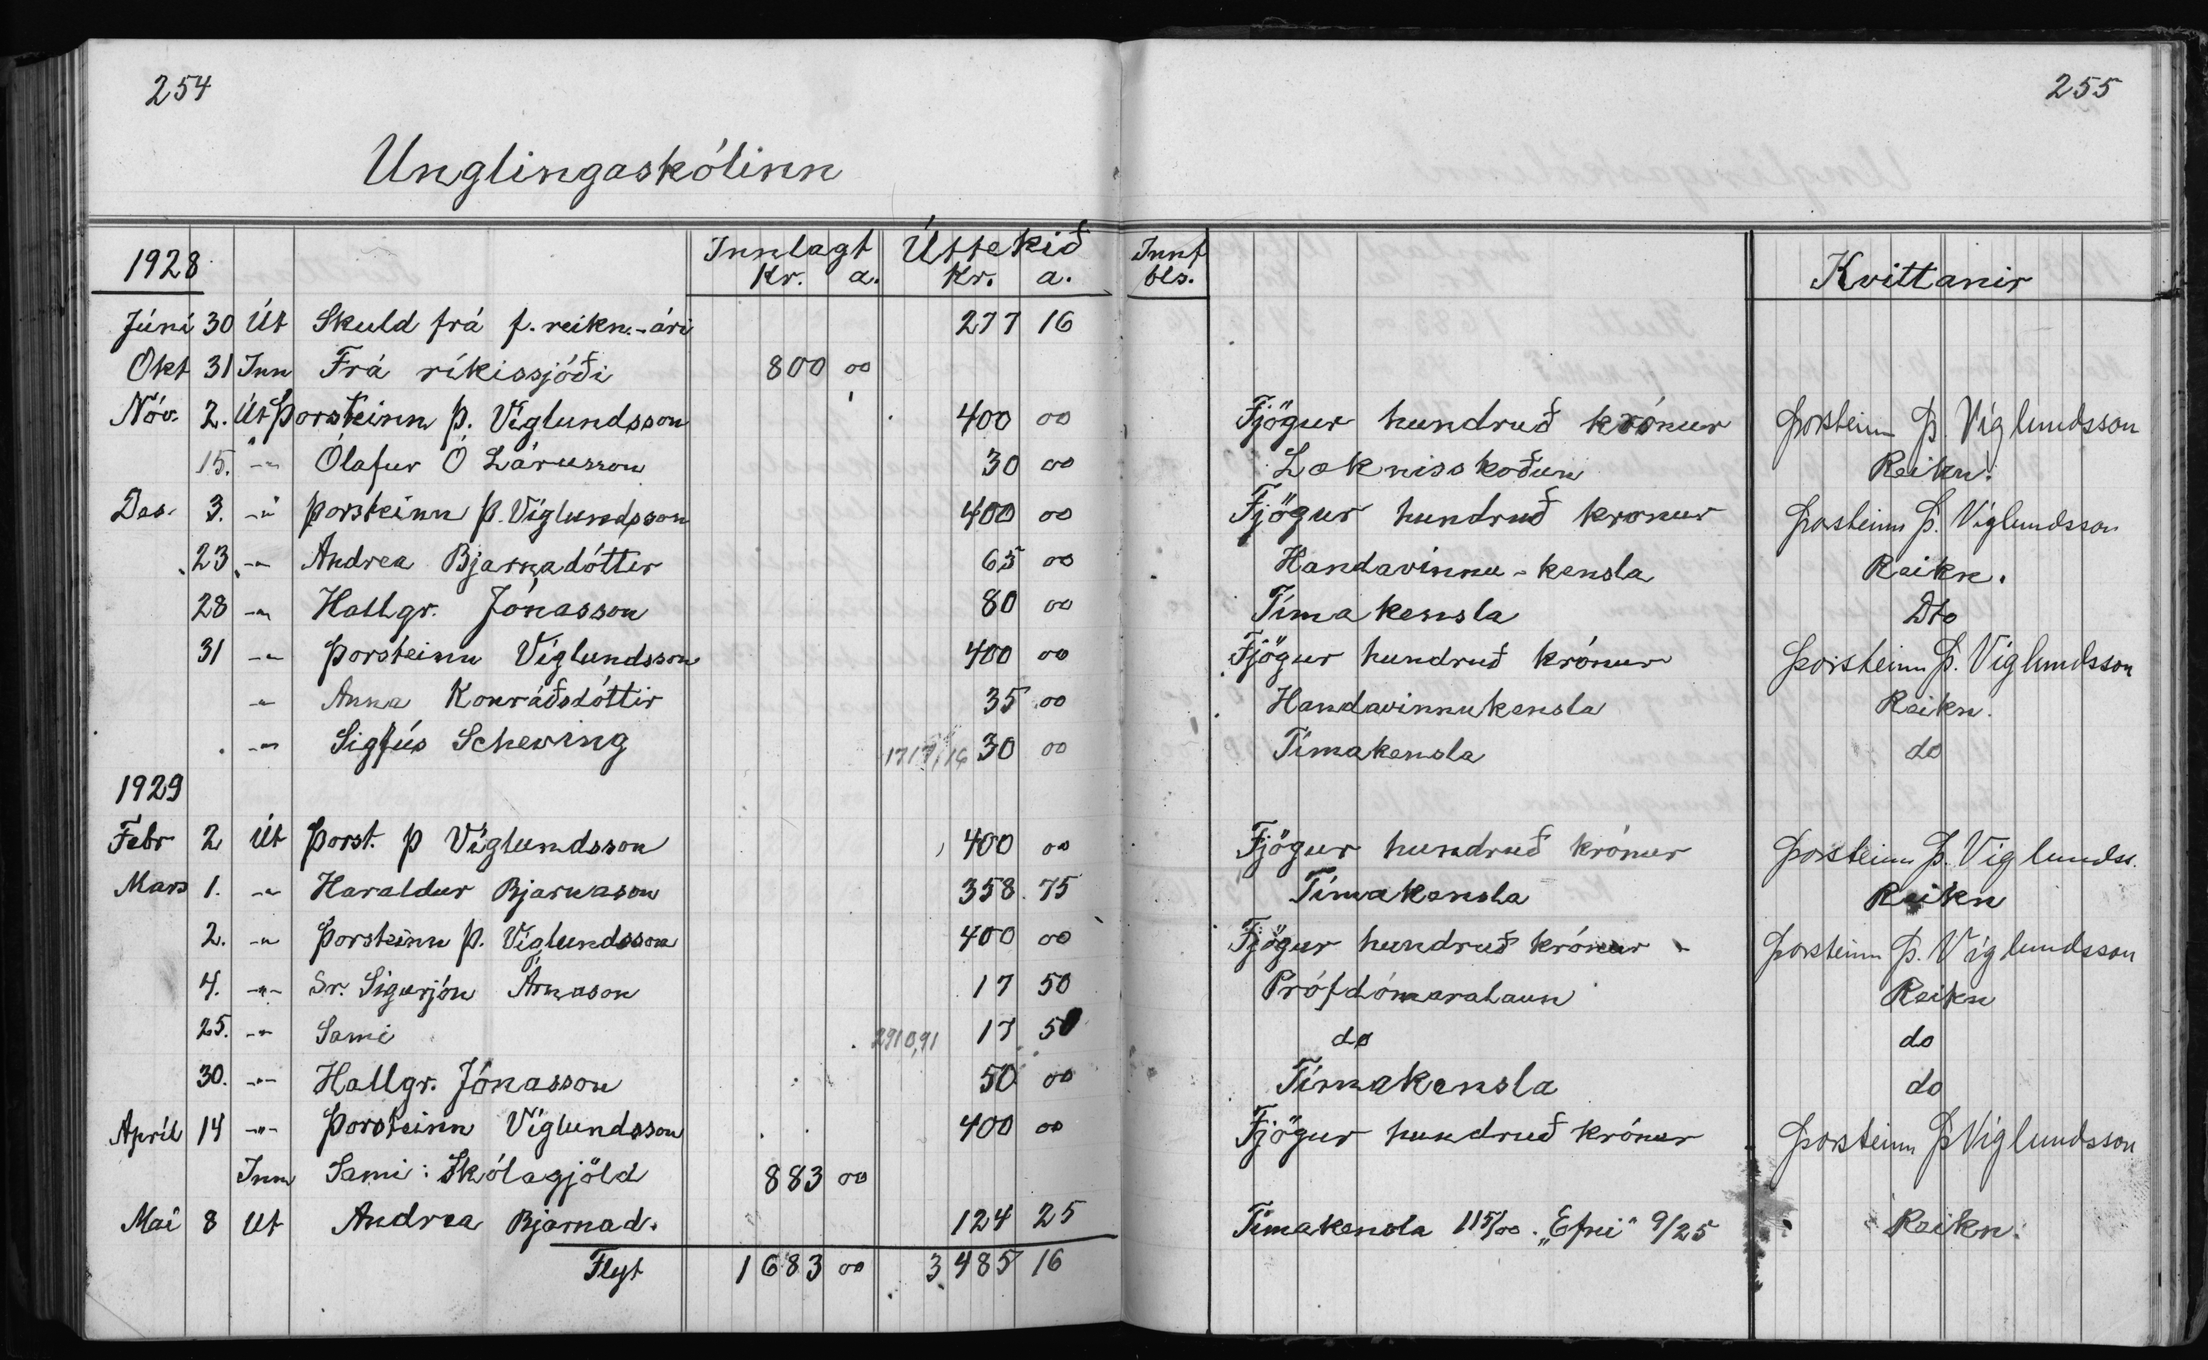 254
255
Unglingaskólinn
1928 Innlagt Kr. a. Úttekið Kr. a. Innf bls. Kvittanir
Júní 30 Út Skuld frá f. reikn.-ári 277 16
Okt 31 Inn Frá ríkissjóði 800 00
Nóv. 2. Út Þorsteinn Þ. Víglundsson 400 00 Fjögur hundruð krónur Þorsteinn Þ. Víglundsson
15. -"- Ólafur Ó Lárusson 30 00 Læknisskoðun Reikn.
Des. 3. -"- Þorsteinn Þ. Víglundsson 400 00 Fjögur hundruð kronur Þorsteinn Þ. Víglundsson
23 -"- Andrea Bjarnadóttir 65 00 Handavinnu-kensla Reikn.
28 -"- Hallgr. Jónasson 80 00 Tímakensla Dto
31 -"- Þorsteinn Víglundsson 400 00 Fjögur hundruð krónur Þorsteinn Þ. Víglundsson
-"- Anna Konráðsdóttir 35 00 Handavinnukensla Reikn.
-"- Sigfús Scheving 1717,16 30 00 Tímakensla do
1929
Febr 2 Út Þorst. Þ Víglundsson 400 00 Fjögur hundruð krónur Þorsteinn Þ. Víglundss.
Mars 1. -"- Haraldur Bjarnason 358 75 Tímakensla Reikn
2. -"- Þorsteinn Þ. Víglundsson 400 00 Fjögur hundruð krónur - Þorsteinn Þ. Víglundsson
4. -"- Sr. Sigurjón Árnason 17 50 Prófdómaralaun Reikn
25. -"- Sami 2910,91 17 50 do do
30. -"- Hallgr. Jónasson 50 00 Tímakensla do
Apríl 14 -"- Þorsteinn Víglundsson 400 00 Fjögur hundruð krónur Þorsteinn Þ Víglundsson
Inn Sami: Skólagjöld 883 00
Maí 8 Út Andrea Bjarnad. 124 25 Tímakensla 115/00. „Efni" 9/25 Reikn.
Flyt 1683 00 3485 16